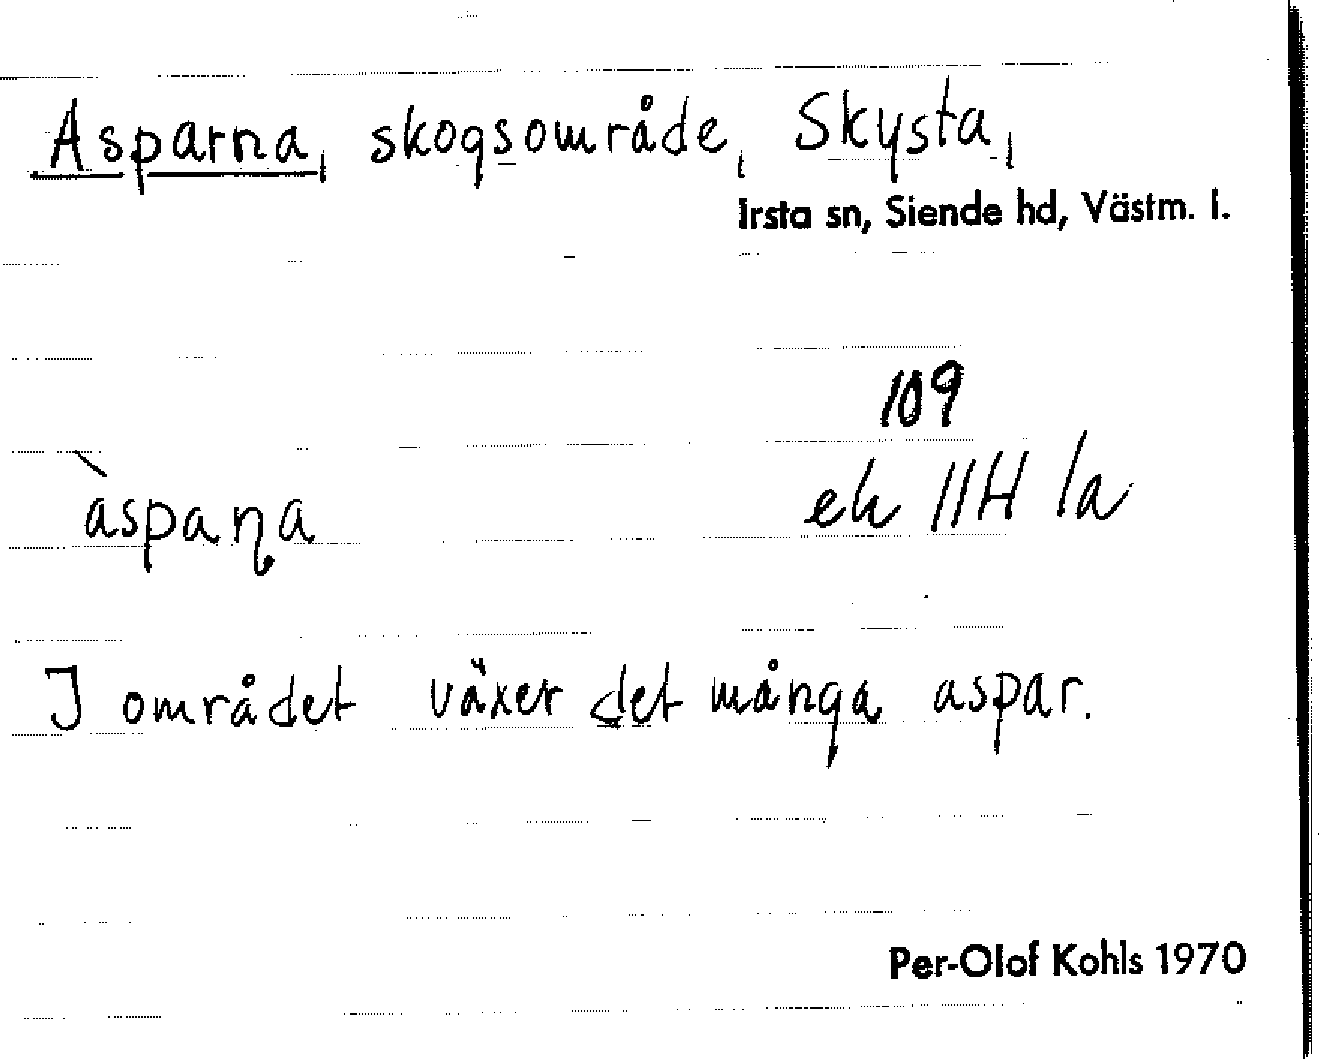 Asparna, skogsområde, Skysta,
Irsta sn, Siende hd, Västm. l.
109
àspaṇa
ek 11H 1a
I området växer det många aspar.
Per-Olof Kohls 1970